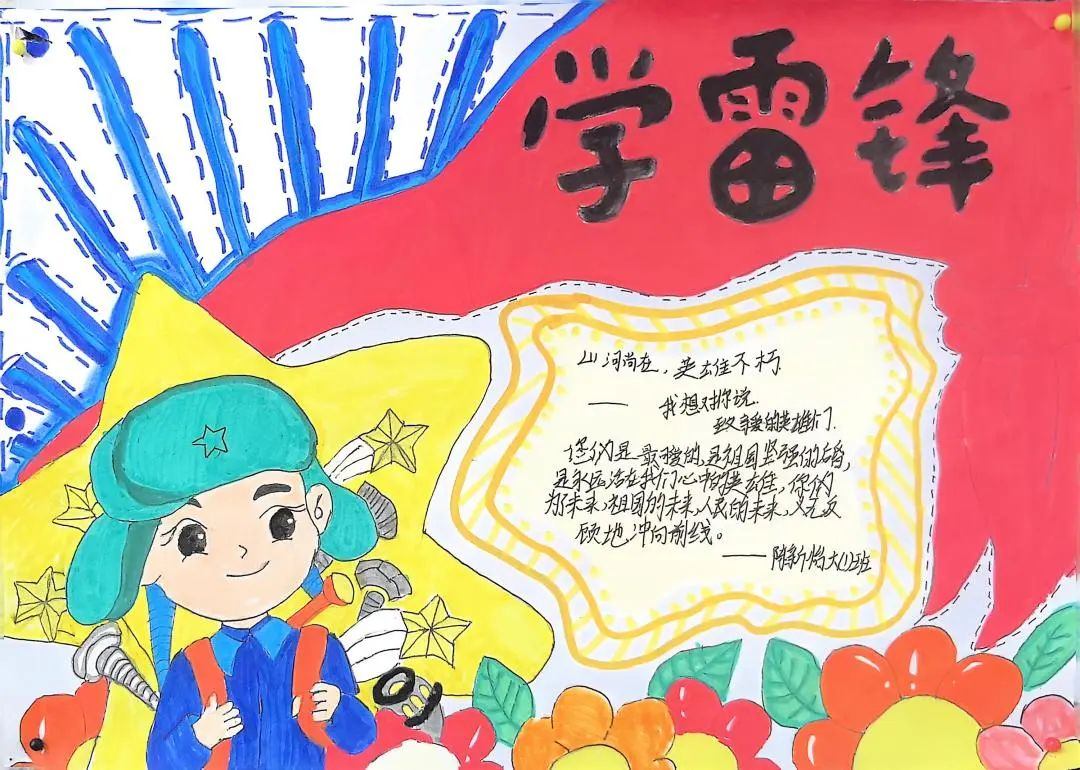 学雷锋
山河尚在,英雄不朽.
—— 我想对你说.
致亲爱的英雄们.
您们是最可爱的,是祖国坚强的后盾,
是永远活在我们心中的英雄,你们
为了未来,祖国的未来,人民的未来,义无反
顾地冲向前线。
——陈新怡大(1)班